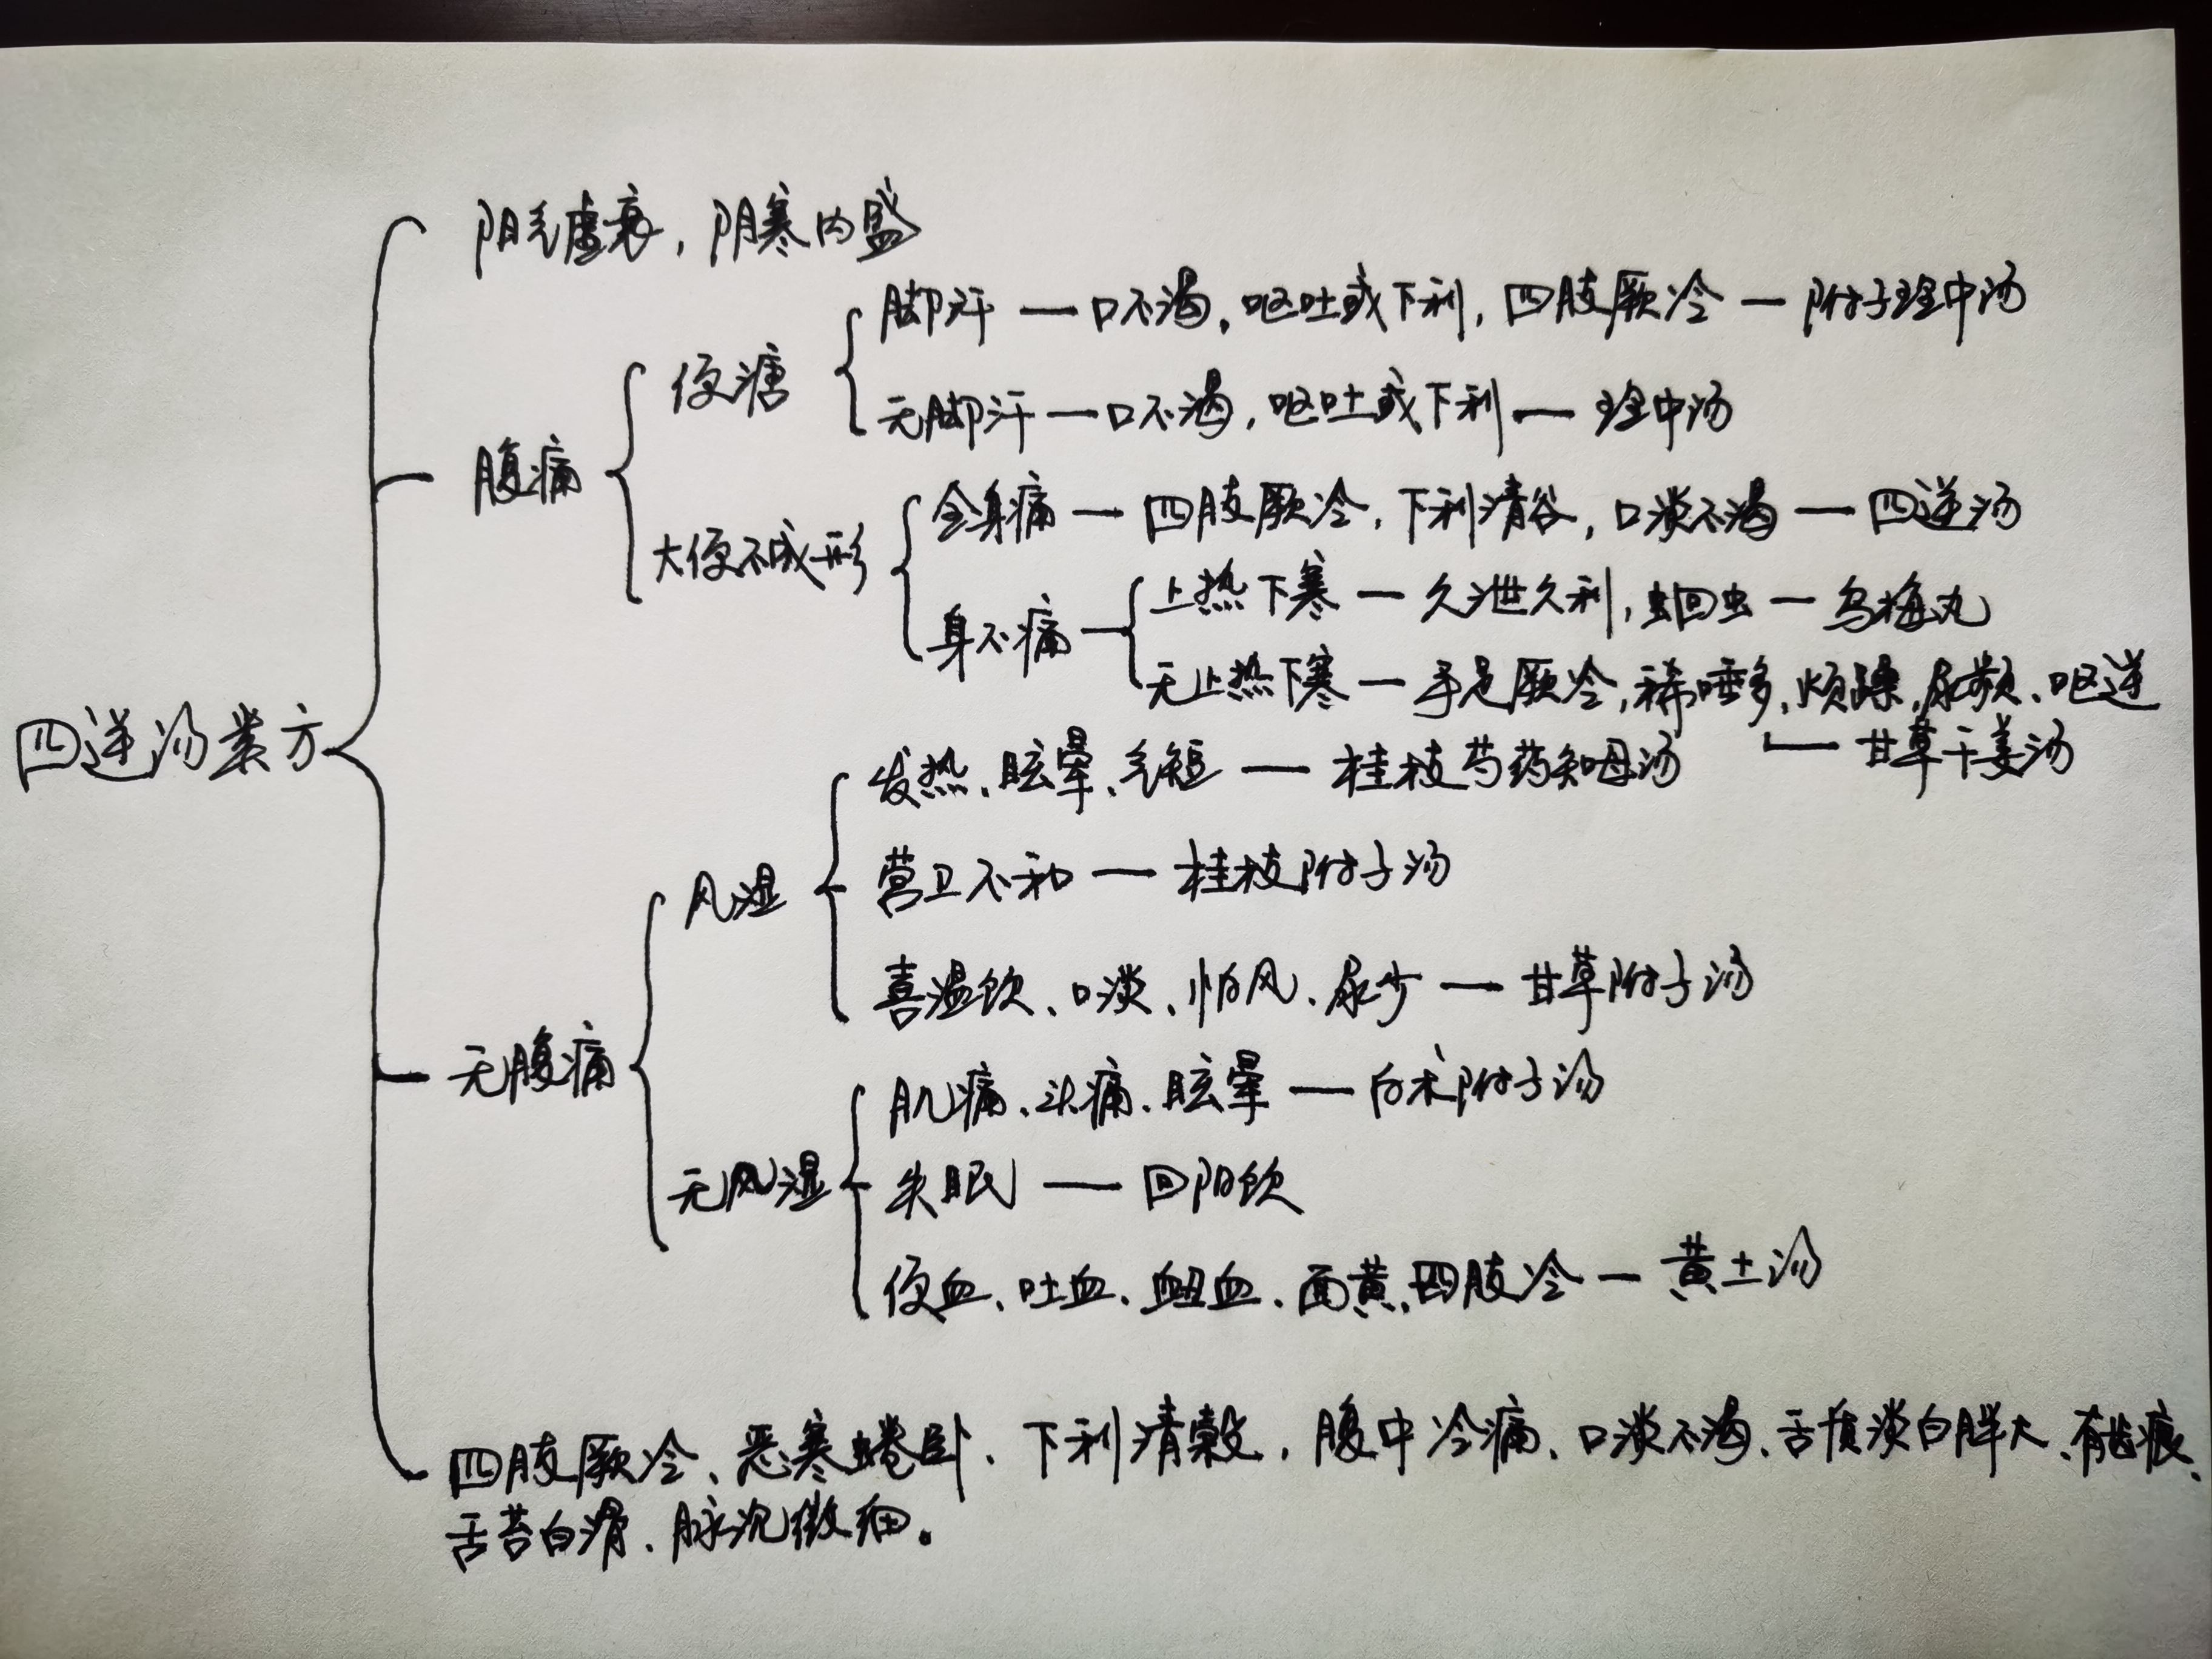 阳气虚衰，阴寒内盛
脚汗—口不渴，呕吐或下利，四肢厥冷—附子理中汤
便溏
无脚汗—口不渴，呕吐或下利—理中汤
腹痛
全身痛—四肢厥冷，下利清谷，口淡不渴—四逆汤
大便不成形
上热下寒—久泄久利，蛔虫—乌梅丸
身不痛
无上热下寒—手足厥冷，稀唾多、烦躁，尿频、呕逆
—甘草干姜汤
四逆汤类方
发热、眩晕、气短—桂枝芍药知母汤
营卫不和—桂枝附子汤
风湿
喜温饮、口淡、怕风、尿少—甘草附子汤
无腹痛
肌痛、头痛、眩晕—白术附子汤
无风湿
失眠—回阳饮
便血、吐血、衄血、面黄、四肢冷—黄土汤
四肢厥冷、恶寒蜷卧、下利清谷，腹中冷痛、口淡不渴、舌质淡白胖大、有齿痕、
舌苔白滑、脉沉微细。